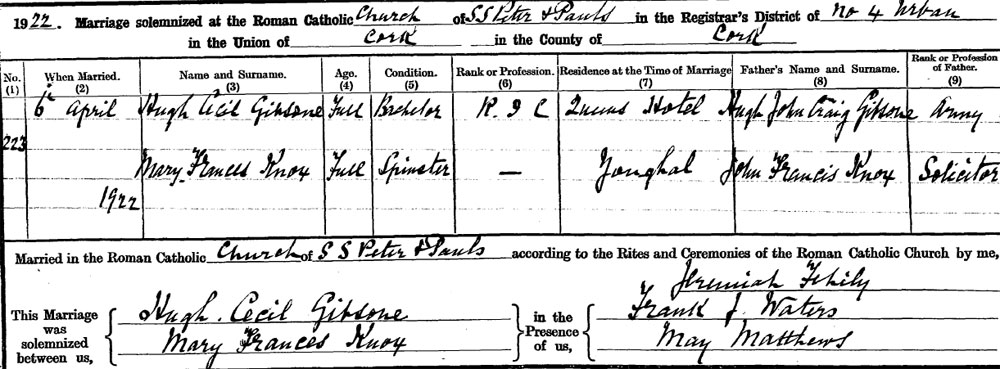 1922. Marriage solemnized at the Roman Catholic Church of SS Peter & Pauls in the Registrar's District of No 4 Urban
in the Union of Cork in the County of Cork
No. When Married. Name and Surname. Age. Condition. Rank or Profession. Residence at the Time of Marriage Father's Name and Surname. Rank or Profession of Father.
(1) (2) (3) (4) (5) (6) (7) (8) (9)
6th April Hugh Cecil Gibsone Full Bachelor R. I C Queens Hotel Hugh John Craig Gibsone Army
223
Mary Frances Knox Full Spinster — Youghal John Francis Knox Solicitor
1922
Married in the Roman Catholic Church of S S Peter & Pauls according to the Rites and Ceremonies of the Roman Catholic Church by me,
Jeremiah Fehily
This Marriage was solemnized between us, Hugh Cecil Gibsone in the Presence of us, Frank J. Waters
Mary Frances Knox May Matthews